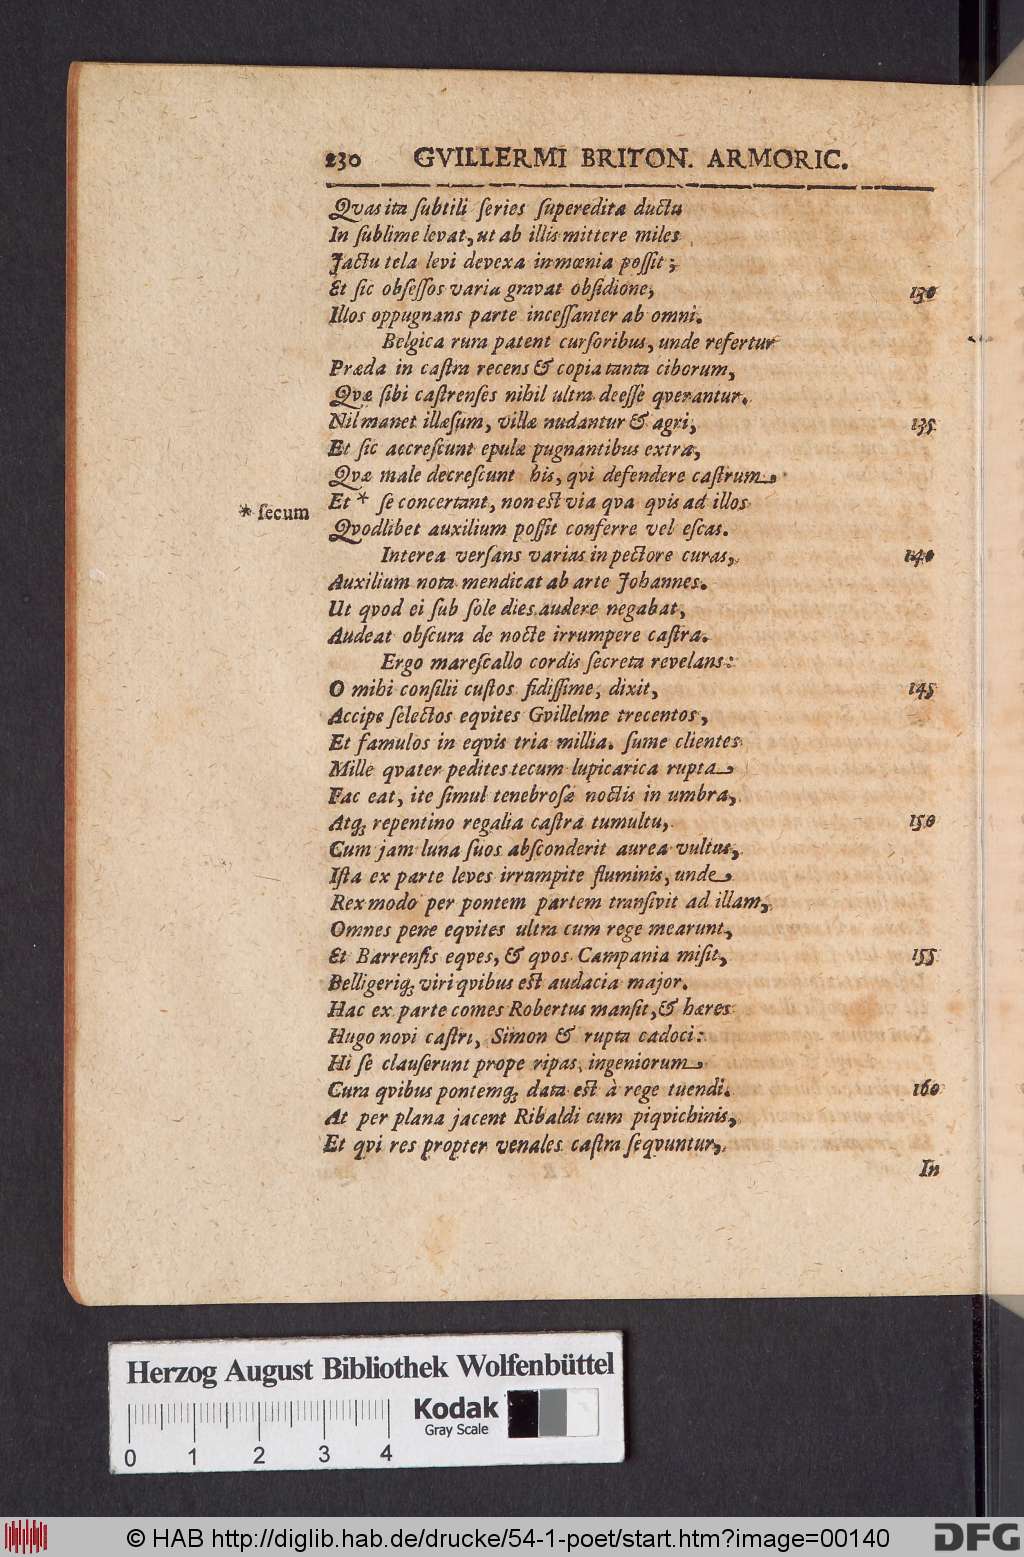 230 GVILLERMI BRITON. ARMORIC.
Qvas ita ſubtili ſeries ſuperedita ductu
In ſublime levat, ut ab illis mittere miles
Jactu tela levi devexa in mœnia poſſit;
Et ſic obſeſſos varia gravat obſidione, 130
Illos oppugnans parte inceſſanter ab omni.
Belgica rura patent curſoribus, unde refertur
Præda in caſtra recens & copia tanta ciborum,
Qvæ ſibi caſtrenſes nihil ultra deeſſe qverantur.
Nil manet illæſum, villæ nudantur & agri, 135
Et ſic accreſcunt epulæ pugnantibus extra,
Qvæ male decreſcunt his, qvi defendere caſtrum
* ſecum Et * ſe concertant, non est via qva qvis ad illos
Qvodlibet auxilium poſſit conferre vel eſcas.
Interea verſans varias in pectore curas, 140
Auxilium nota mendicat ab arte Johannes.
Ut qvod ei ſub ſole dies audere negabat,
Audeat obſcura de nocte irrumpere caſtra.
Ergo mareſcallo cordis ſecreta revelans:
O mihi conſilii cuſtos fidiſſime, dixit, 145
Accipe ſelectos eqvites Gvillelme trecentos,
Et famulos in eqvis tria millia. ſume clientes
Mille qvater pedites tecum lupicarica rupta
Fac eat, ite ſimul tenebroſæ noctis in umbra,
Atq; repentino regalia caſtra tumultu, 150
Cum jam luna ſuos abſconderit aurea vultus,
Iſta ex parte leves irrumpite fluminis, unde
Rex modo per pontem partem tranſivit ad illam,
Omnes pene eqvites ultra cum rege mearunt,
Et Barrenſis eqves, & qvos Campania miſit, 155
Belligeriq; viri qvibus est audacia major.
Hac ex parte comes Robertus manſit, & hæres
Hugo novi caſtri, Simon & rupta cadoci:
Hi ſe clauſerunt prope ripas, ingeniorum
Cura qvibus pontemq; data est à rege tuendi. 160
At per plana jacent Ribaldi cum piqvichinis,
Et qvi res propter venales caſtra ſeqvuntur,
In
Herzog August Bibliothek Wolfenbüttel
Kodak
Gray Scale
0 1 2 3 4
© HAB http://diglib.hab.de/drucke/54-1-poet/start.htm?image=00140
DFG